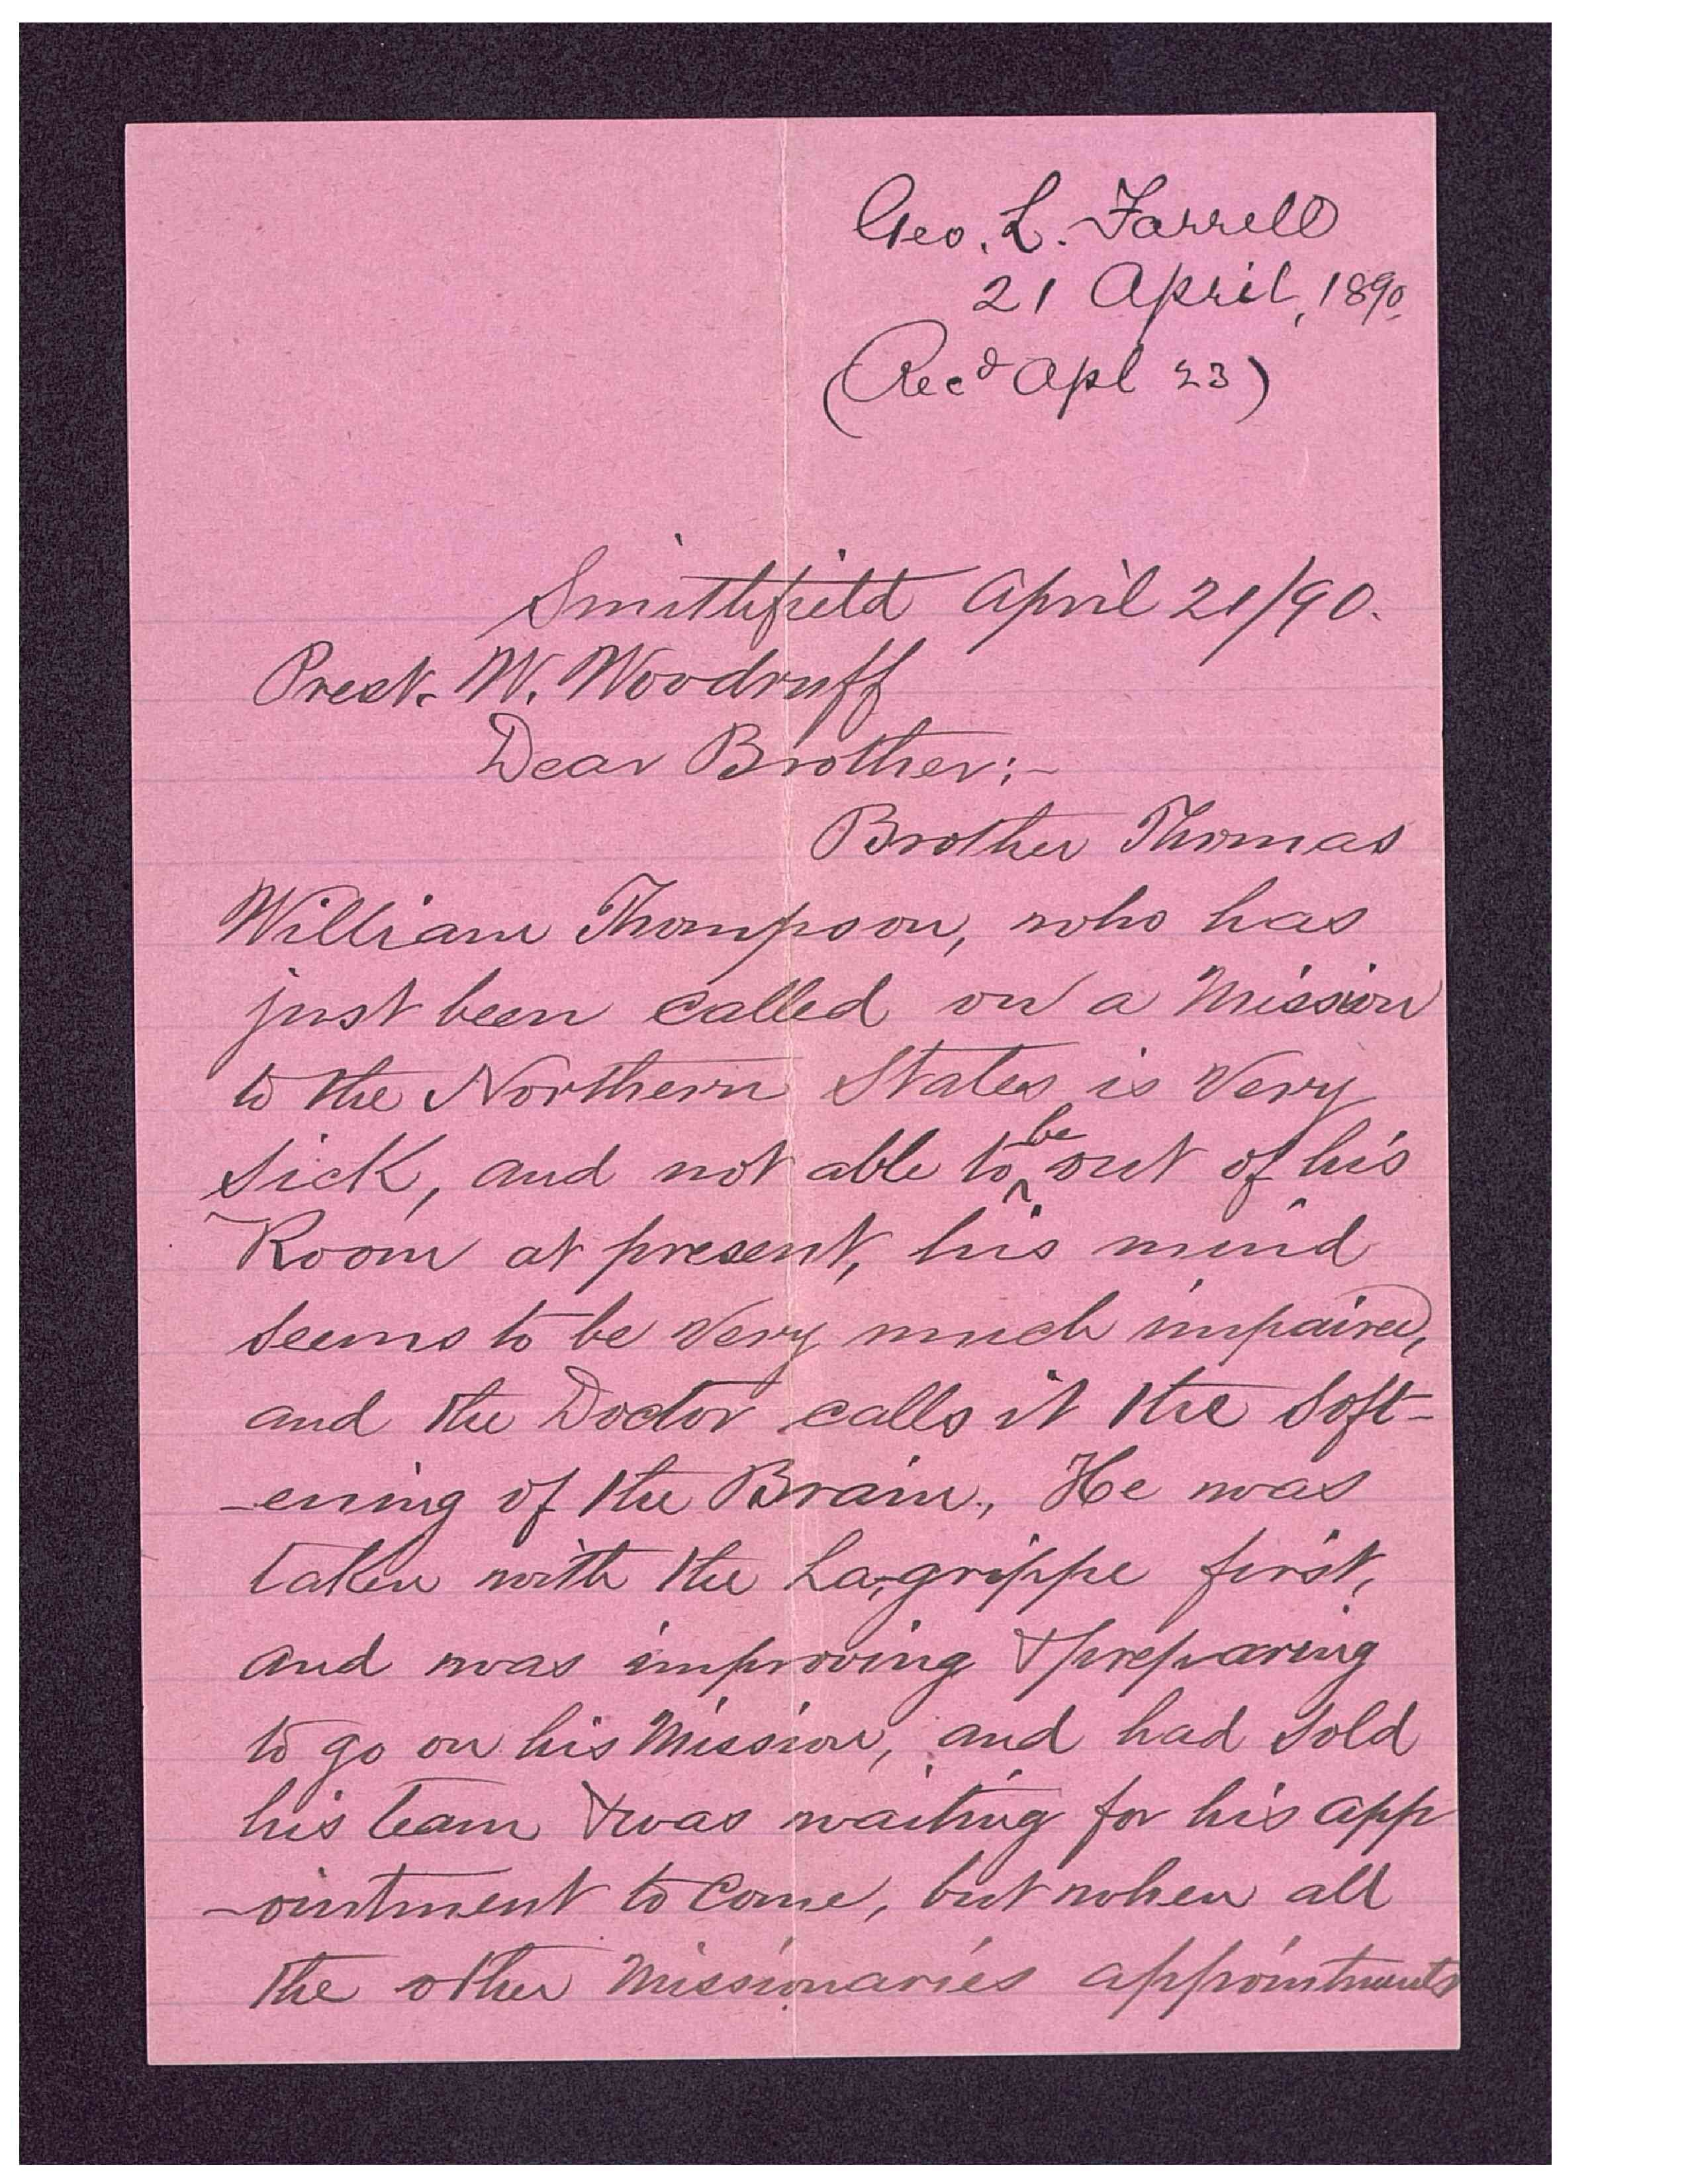 Geo. L. Farrell
21 April, 1890.
(Recd Apl 23)
Smithfield April 21/90.
Prest. W. Woodruff
Dear Brother:-
Brother Thomas
William Thompson, who has
just been called on a Mission
to the Northern States is Very
sick, and not able to be out of his
Room at present, his mind
seems to be Very much impaired,
and the Doctor calls it the Soft-
-ening of the Brain., He was
taken with the La,grippe first,
and was improving & preparing
to go on his Mission, and had sold
his team & was waiting for his app
-ointment to come, but when all
the other Missionaries appointments